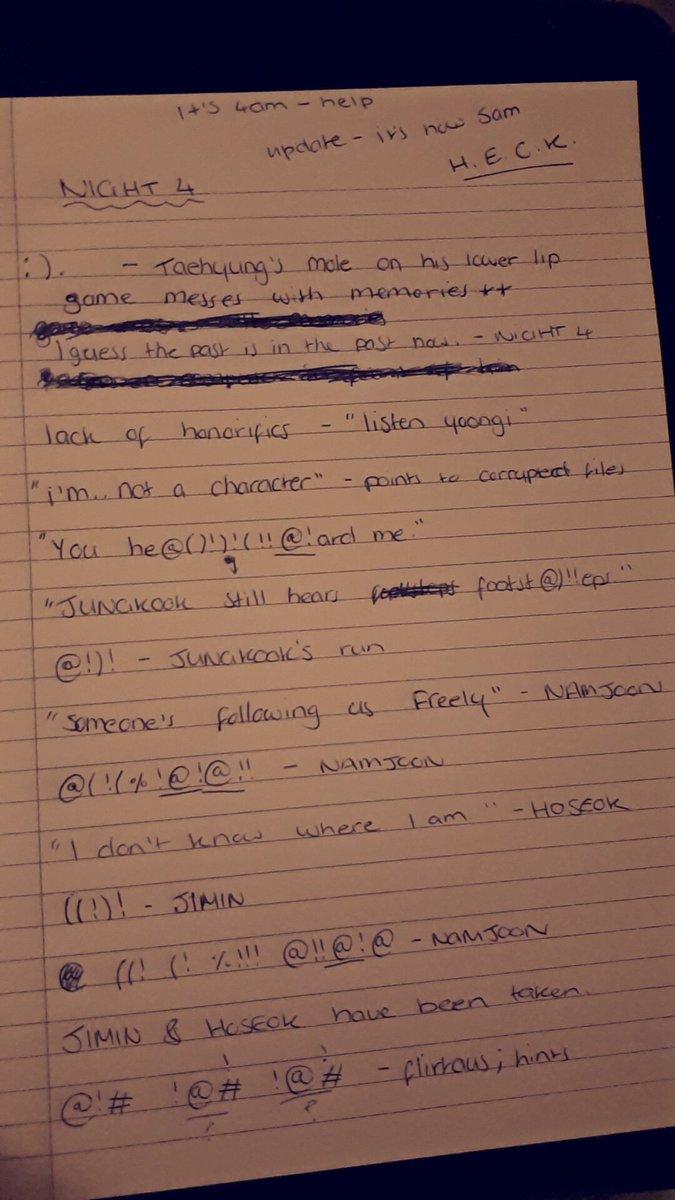 it's 4am - help
update - it's now 5am
H.E.C.K.
NIGHT 4
:). - Taehyung's mole on his lower lip
game messes with memories ++
I guess the past is in the past now. - NIGHT 4
lack of honorifics - "listen yoongi"
"i'm.. not a character" - points to corrupted files
"You he@()!)!(!!@!ard me."
"JUNGKOOK still hears footst@)!!eps"
@!)! - JUNGKOOK's run
"Someone's following us Freely" - NAMJOON
@(!(%!@!@!! - NAMJOON
"I don't know where I am" - HOSEOK
((!)! - JIMIN
((! (! %!!! @!!@!@ - NAMJOON
JIMIN & HOSEOK have been taken.
@!# !@# !@# - flirtous; hints